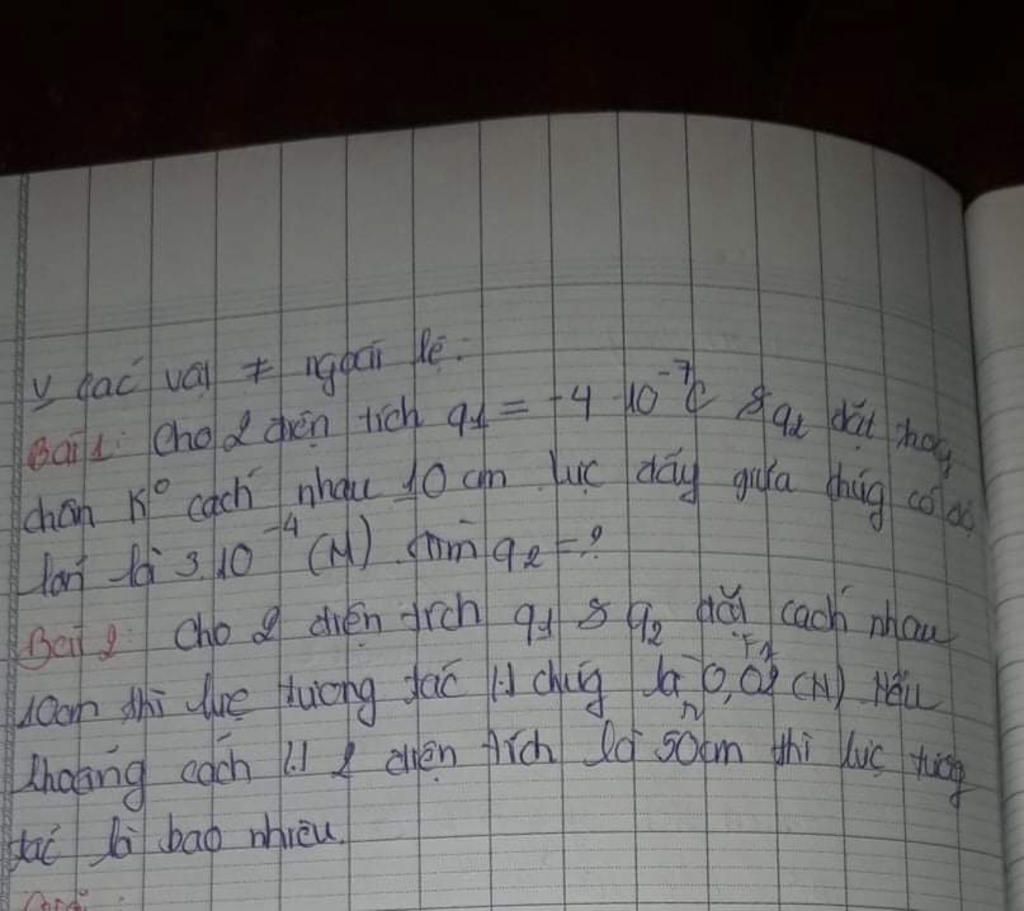 v các vật ≠ ngoại lệ:
Bài 1: Cho 2 điện tích q1 = -4 10⁻⁷C & q2 đặt trong
chân K° cách nhau 10 cm lực đẩy giữa chúg có độ
lớn là 3.10⁻⁴ (N) tìm q2 = ?
Bài 2: Cho 2 điện tích q1 & q2 đặt cách nhau
F1
10cm thì lực tương tác chúg là 0,02 (N) Nếu
r2
khoảng cách 2 điện tích là 50cm thì lực tương
tác là bao nhiêu.